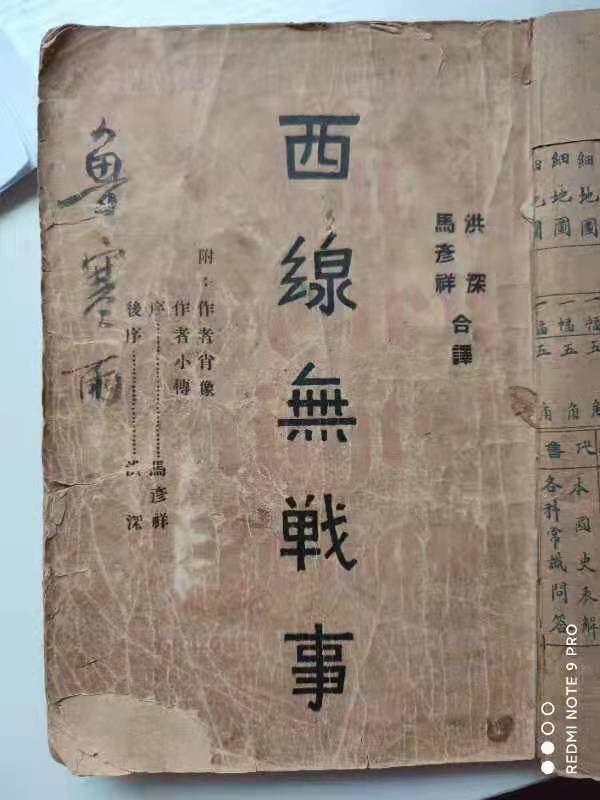 細地圖
細地圖
一幅五
一幅五
本國史表解
各科常識問答
洪深
馬彥祥
合譯
西線無戦事
附：作者肖像
作者小傳
序………………馬彥祥
後序………………洪深
魯寒雨
REDMI NOTE 9 PRO